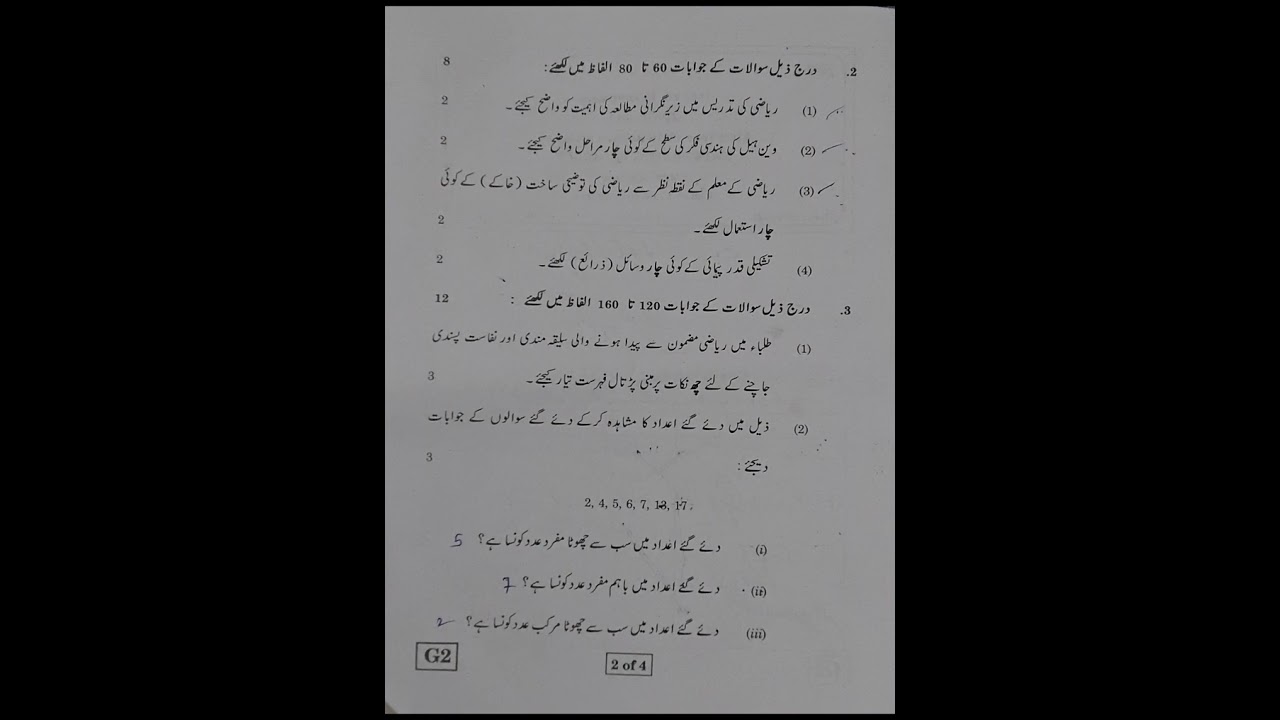 2. درج ذیل سوالات کے جوابات 60 تا 80 الفاظ میں لکھئے : 8
(1) ریاضی کی تدریس میں زیرِ نگرانی مطالعہ کی اہمیت کو واضح کیجئے ۔ 2
(2) وین ہیل کی ہندسی فکر کی سطح کے کوئی چار مراحل واضح کیجئے ۔ 2
(3) ریاضی کے معلم کے نقطہ نظر سے ریاضی کی توضیحی ساخت ( خاکے ) کے کوئی
چار استعمال لکھئے ۔ 2
(4) تشکیلی قدر پیمائی کے کوئی چار وسائل ( ذرائع ) لکھئے ۔ 2
3. درج ذیل سوالات کے جوابات 120 تا 160 الفاظ میں لکھئے : 12
(1) طلباء میں ریاضی مضمون سے پیدا ہونے والی سلیقہ مندی اور نفاست پسندی
جاچنے کے لئے چھ نکات پر مبنی پڑتال فہرست تیار کیجئے ۔ 3
(2) ذیل میں دئے گئے اعداد کا مشاہدہ کرکے دئے گئے سوالوں کے جوابات
دیجئے : 3
2, 4, 5, 6, 7, 13, 17.
(i) دئے گئے اعداد میں سب سے چھوٹا مفرد عدد کونسا ہے؟ 5
(ii) دئے گئے اعداد میں باہم مفرد عدد کونسا ہے؟ 7
(iii) دئے گئے اعداد میں سب سے چھوٹا مرکب عدد کونسا ہے؟ 2
G2 2 of 4